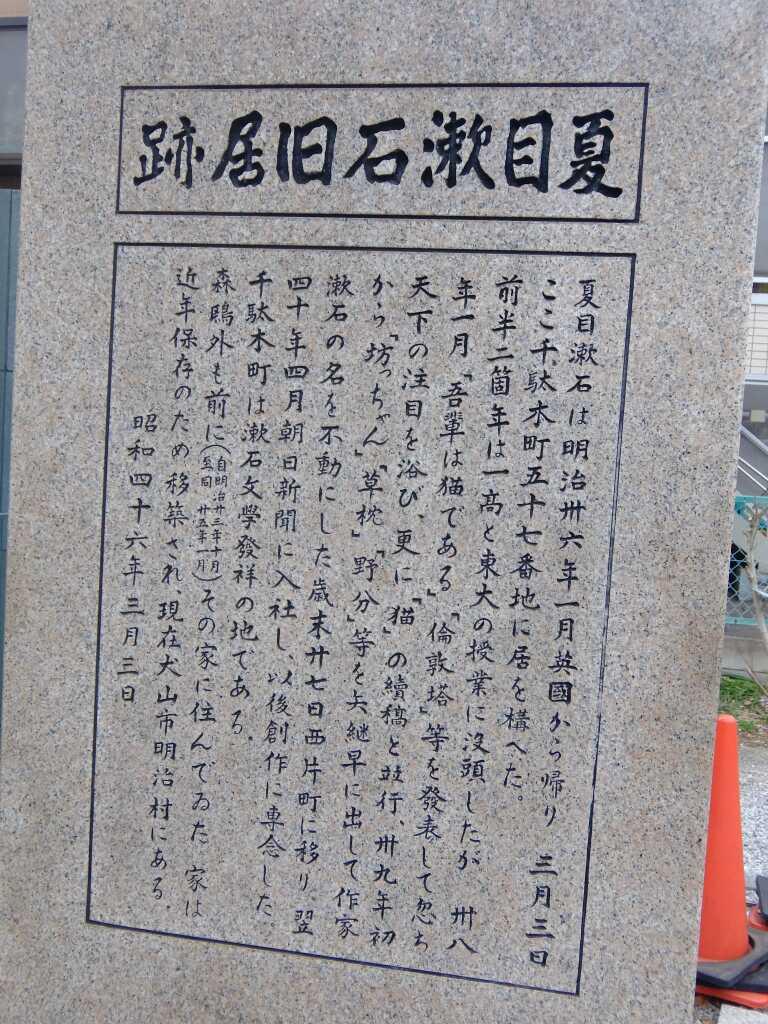 夏目漱石旧居跡
夏目漱石は明治卅六年一月英國から帰り　三月三日
ここ千駄木町五十七番地に居を構へた。
前半二箇年は一高と東大の授業に没頭したが　卅八
年一月「吾輩は猫である」「倫敦塔」等を發表して忽ち
天下の注目を浴び、更に「猫」の續稿と竝行、卅九年初
から「坊っちゃん」「草枕」「野分」等を矢継早に出して作家
漱石の名を不動にした歳末廿七日西片町に移り、翌
四十年四月朝日新聞に入社し、以後創作に専念した。
千駄木町は漱石文學發祥の地である。
森鴎外も前に（自明治廿三年十月至同　廿五年一月）その家に住んでゐた　家は
近年保存のため移築され、現在犬山市明治村にある。
昭和四十六年三月三日